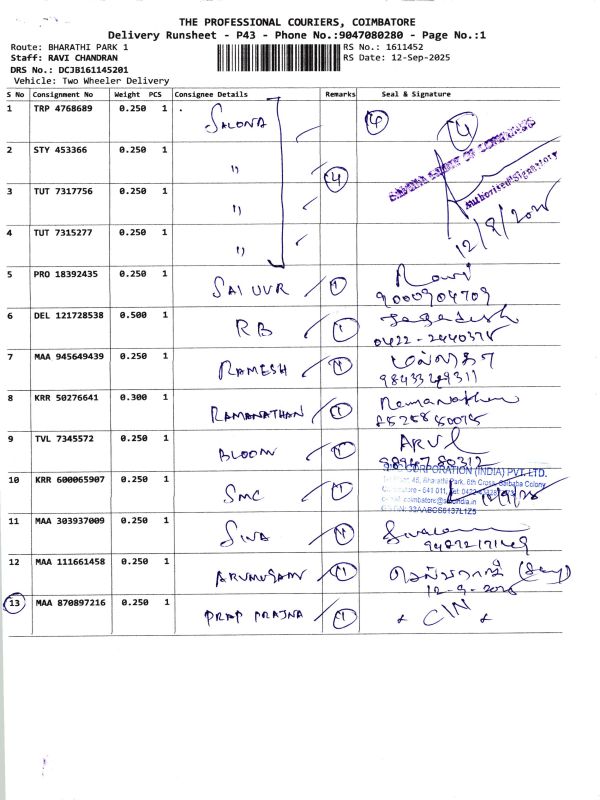 THE PROFESSIONAL COURIERS, COIMBATORE
Delivery Runsheet - P43 - Phone No.:9047080280 - Page No.:1
Route: BHARATHI PARK 1
RS No.: 1611452
Staff: RAVI CHANDRAN
RS Date: 12-Sep-2025
DRS No.: DCJB161145201
Vehicle: Two Wheeler Delivery
S No Consignment No Weight PCS Consignee Details Remarks Seal & Signature
1 TRP 4768689 0.250 1 SALONA 4 4
2 STY 453366 0.250 1 " 4
Authorised Signatory
3 TUT 7317756 0.250 1 "
4 TUT 7315277 0.250 1 "
5 PRO 18392435 0.250 1 SAI UVR 1
6 DEL 121728538 0.500 1 RB 1 Jagadesh
7 MAA 945649439 0.250 1 RAMESH 1
8 KRR 50276641 0.300 1 RAMANATHAN 1 Ramanathan
9 TVL 7345572 0.250 1 BLOOM 1 ARUL
CORPORATION (INDIA) PVT. LTD.
45, Bharathi Park, 6th Cross, Saibaba Colony
10 KRR 600065907 0.250 1 SMC 1
11 MAA 303937009 0.250 1 SIVA 1
12 MAA 111661458 0.250 1 ARUMUGAM 1
12-9-2025
13 MAA 870897216 0.250 1 PRAP PRAJNA 1